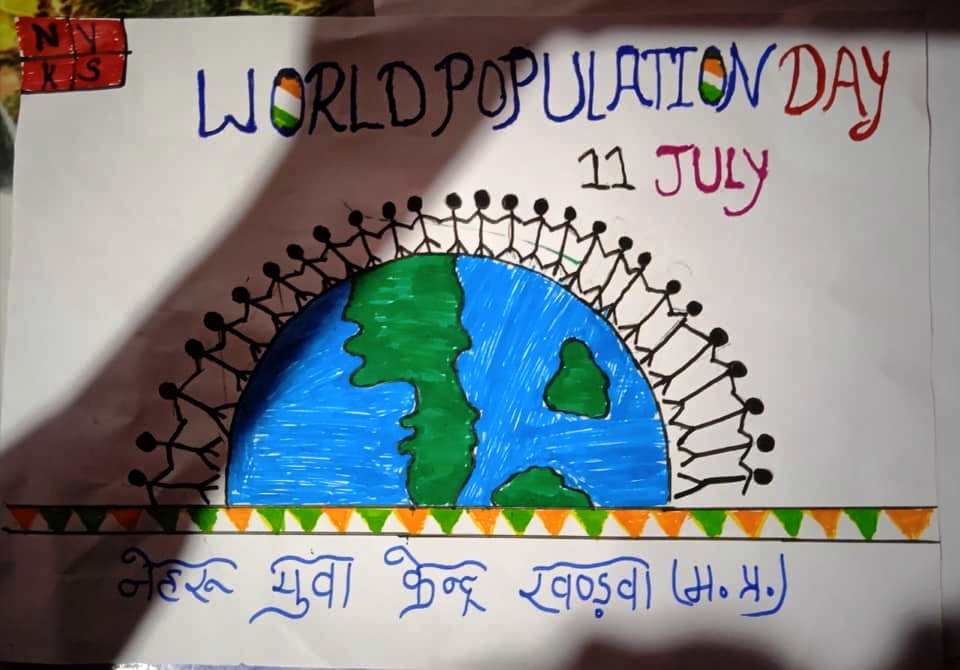 N Y
K S
WORLD POPULATION DAY
11 JULY
नेहरू युवा केन्द्र खण्डवा (म. प्र.)